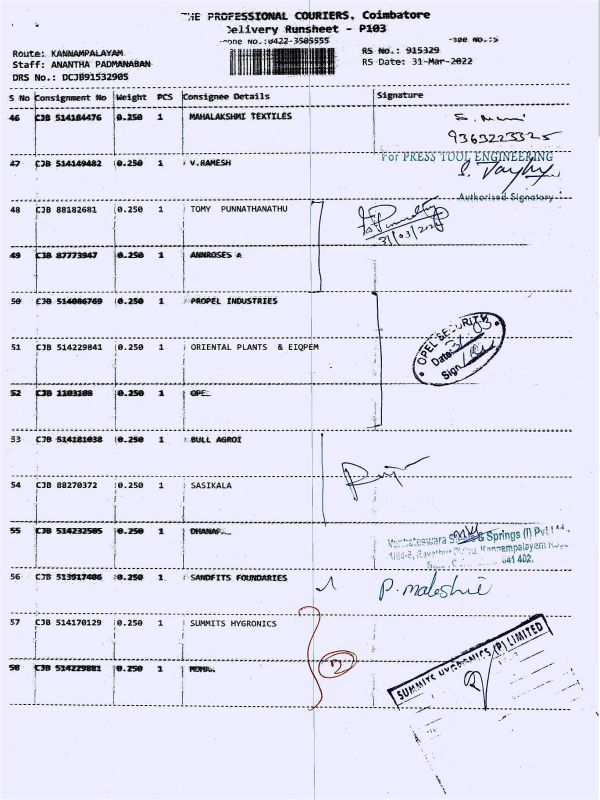 THE PROFESSIONAL COURIERS, Coimbatore
Delivery Runsheet - P103
Phone No.:0422-3505555
Route: KANNAMPALAYAM
RS No.: 915329
Staff: ANANTHA PADMANABAN
RS Date: 31-Mar-2022
DRS No.: DCJB91532905
S No Consignment No Weight PCS Consignee Details Signature
46 CJB 514184476 0.250 1 MAHALAKSHMI TEXTILES
9363223325
For PRESS TOOL ENGINEERING
47 CJB 514149482 0.250 1 V.RAMESH
Authorised Signatory
48 CJB 88182681 0.250 1 TOMY PUNNATHANATHU
31/03/202
49 CJB 87773947 0.250 1 ANNROSES A
50 CJB 514086769 0.250 1 PROPEL INDUSTRIES
OPEL SECURITY
51 CJB 514229841 0.250 1 ORIENTAL PLANTS & EIQPEM
Date: 31/03
Sign
52 CJB 1103108 0.250 1 OPE
53 CJB 514181038 0.250 1 BULL AGROI
54 CJB 88270372 0.250 1 SASIKALA
55 CJB 514232505 0.250 1 DHANA
Venkateswara & Springs (I) Pvt Ltd
Kannampalayam
641 402.
56 CJB 513917406 0.250 1 SANDFITS FOUNDARIES
P. maleshie
57 CJB 514170129 0.250 1 SUMMITS HYGRONICS
SUMMITS HYGRONICS (P) LIMITED
58 CJB 514229881 0.250 1